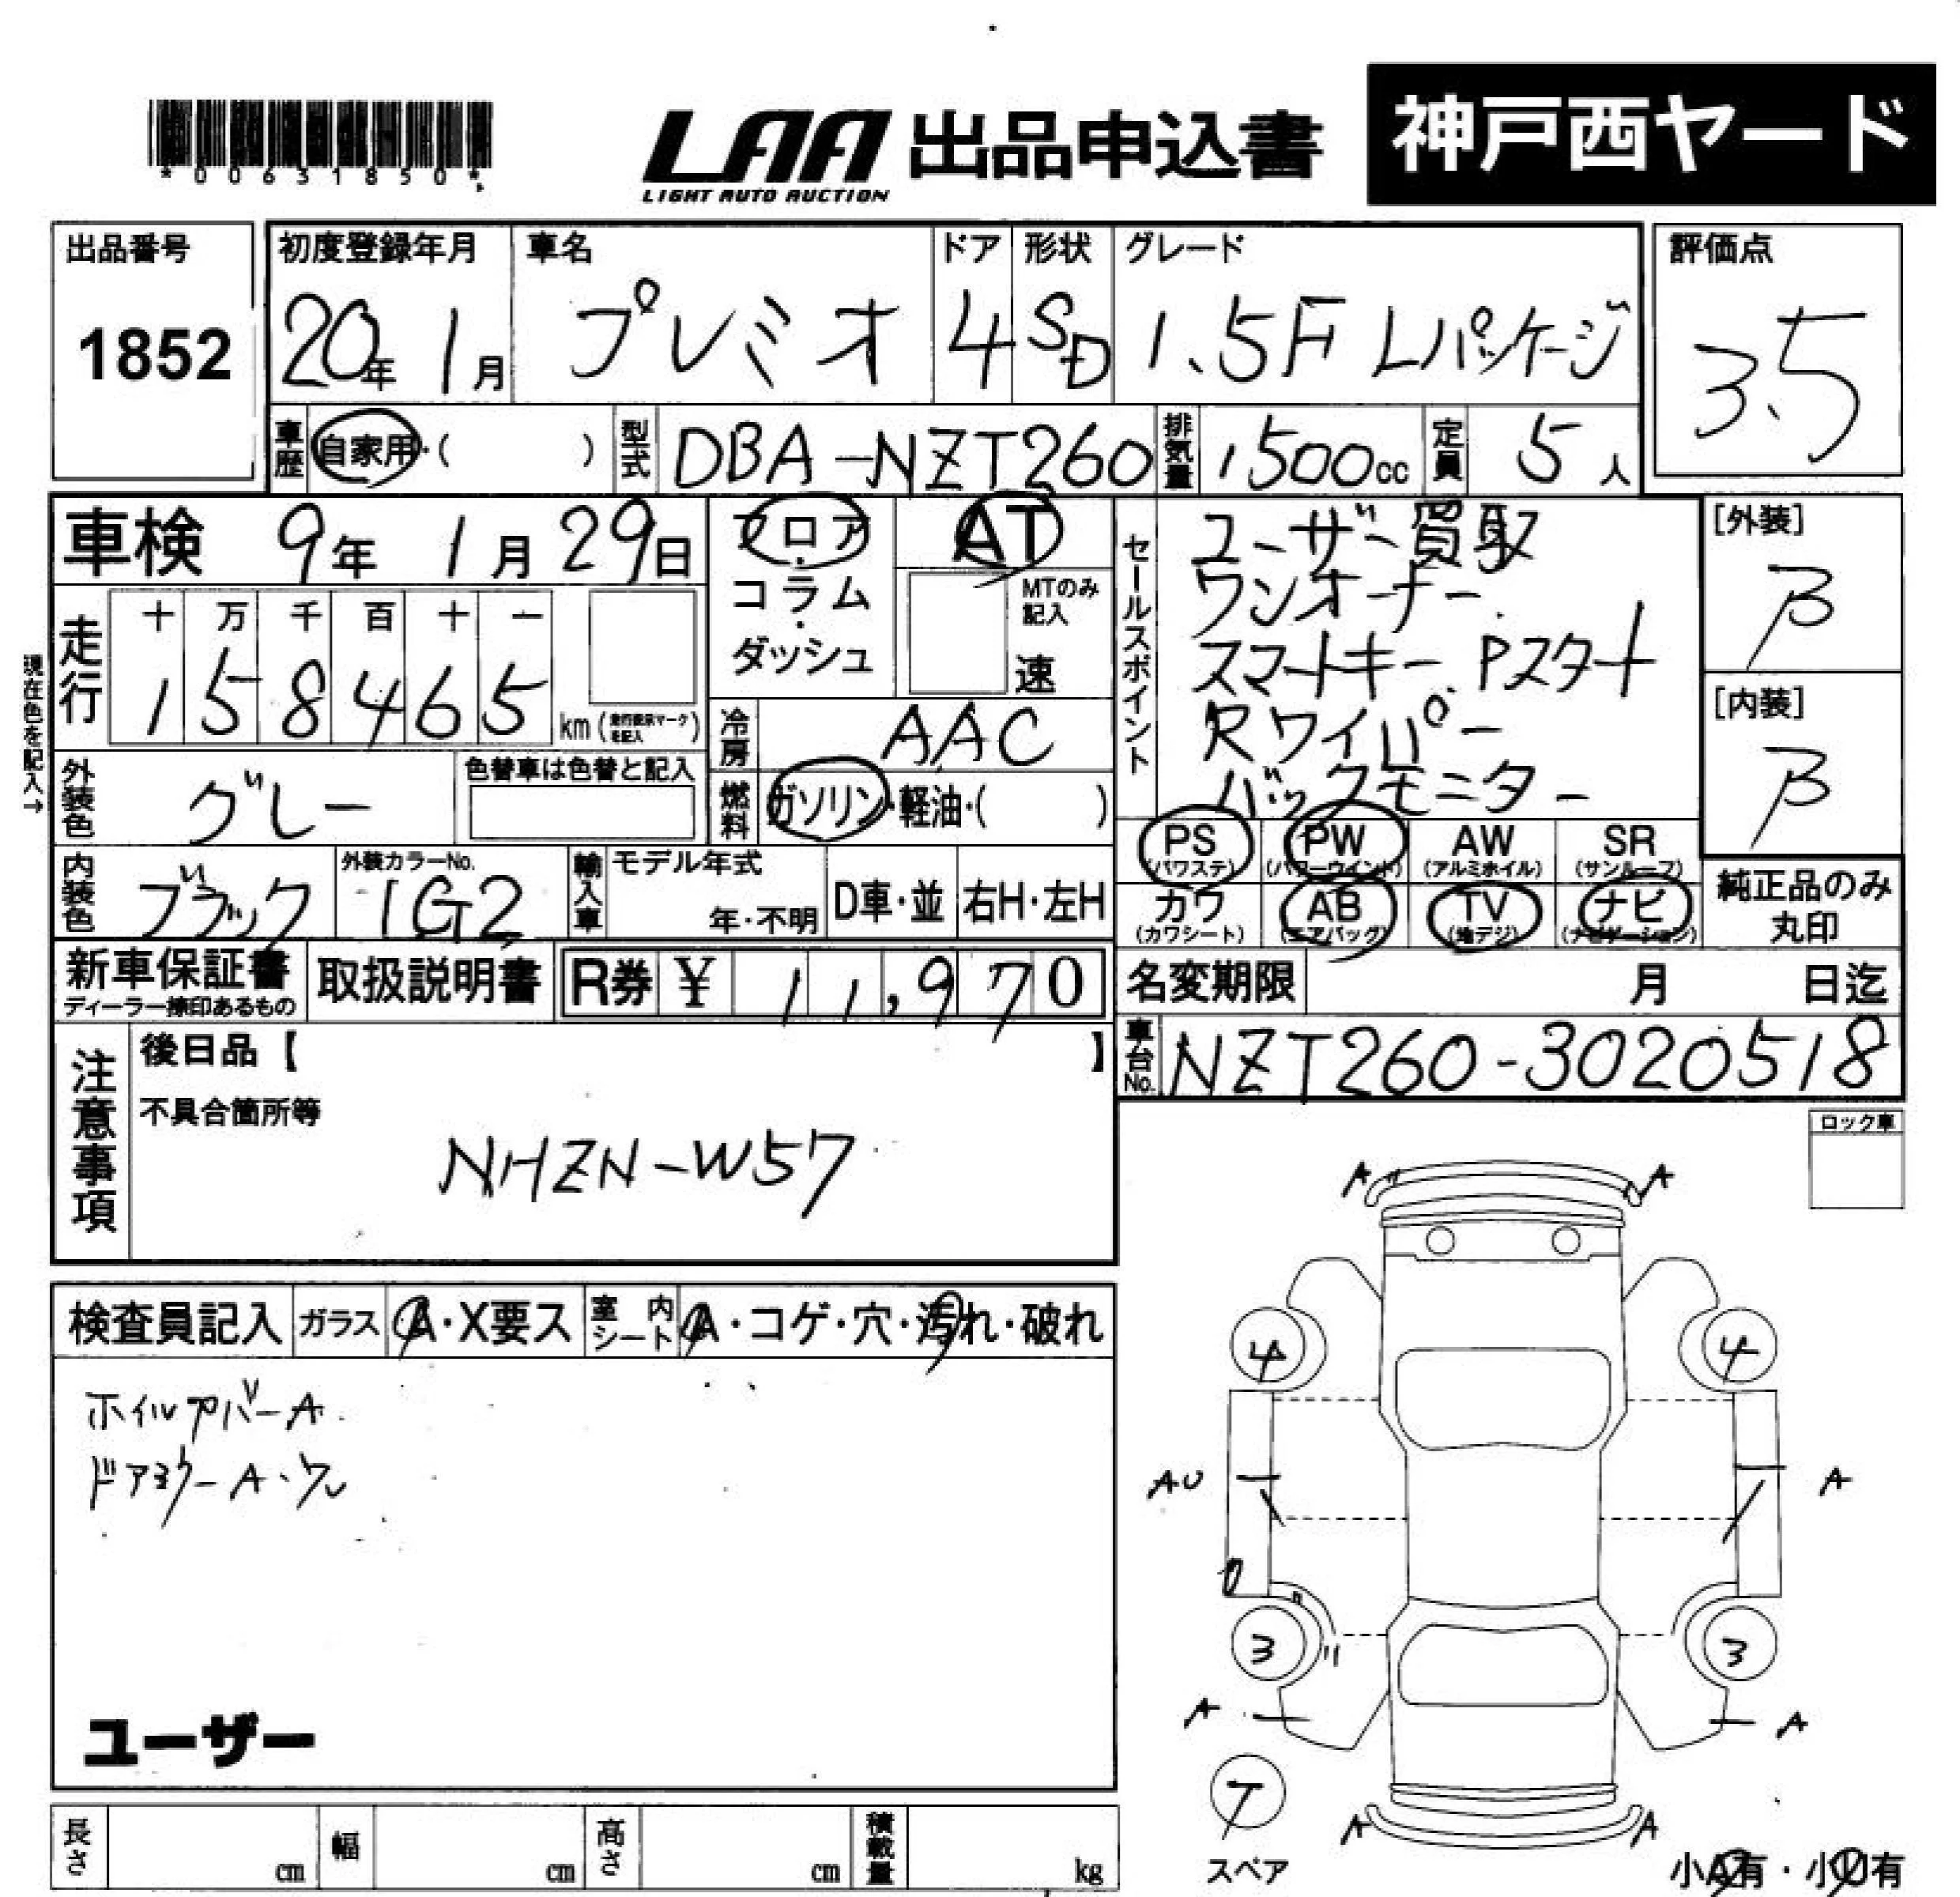 *00631850*
LAA 出品申込書 神戸西ヤード
LIGHT AUTO AUCTION
出品番号 初度登録年月 車名 ドア 形状 グレード 評価点
1852 20年 1月 プレミオ 4 SD 1.5F Lパッケージ 3.5
車歴 自家用・( ) 型式 DBA-NZT260 排気量 1500cc 定員 5人
車検 9年 1月 29日 フロア・コラム・ダッシュ AT
MTのみ記入 速
セールスポイント
ユーザー買取
ワンオーナー
スマートキー Pスタート
Rワイパー
バックモニター
[外装]
B
[内装]
B
現在色を記入→
走行 十 万 千 百 十 一
1 5 8 4 6 5 km (走行表示マークを記入)
冷房 AAC
外装色 グレー 色替車は色替と記入
燃料 ガソリン・軽油・( )
内装色 ブラック 外装カラーNo. 1G2 輸入車 モデル年式 年・不明 D車・並 右H・左H
PS (パワステ) PW (パワーウインド) AW (アルミホイル) SR (サンルーフ)
カワ (カワシート) AB (エアバッグ) TV (地デジ) ナビ (ナビゲーション)
純正品のみ丸印
新車保証書 ディーラー捺印あるもの 取扱説明書 R券 ¥ 11,970
名変期限 月 日迄
車台No. NZT260-3020518
注意事項
後日品【 】
不具合箇所等
NHZN-W57
ロック車
検査員記入 ガラス A・X要ス 室内シート A・コゲ・穴・汚れ・破れ
ホイルカバーA
ドアミラーA・ワレ
ユーザー
A A
4 4
AU A
U
3 3
A A
T
スペア
A A
小A有・小U有
長さ cm 幅 cm 高さ cm 積載量 kg